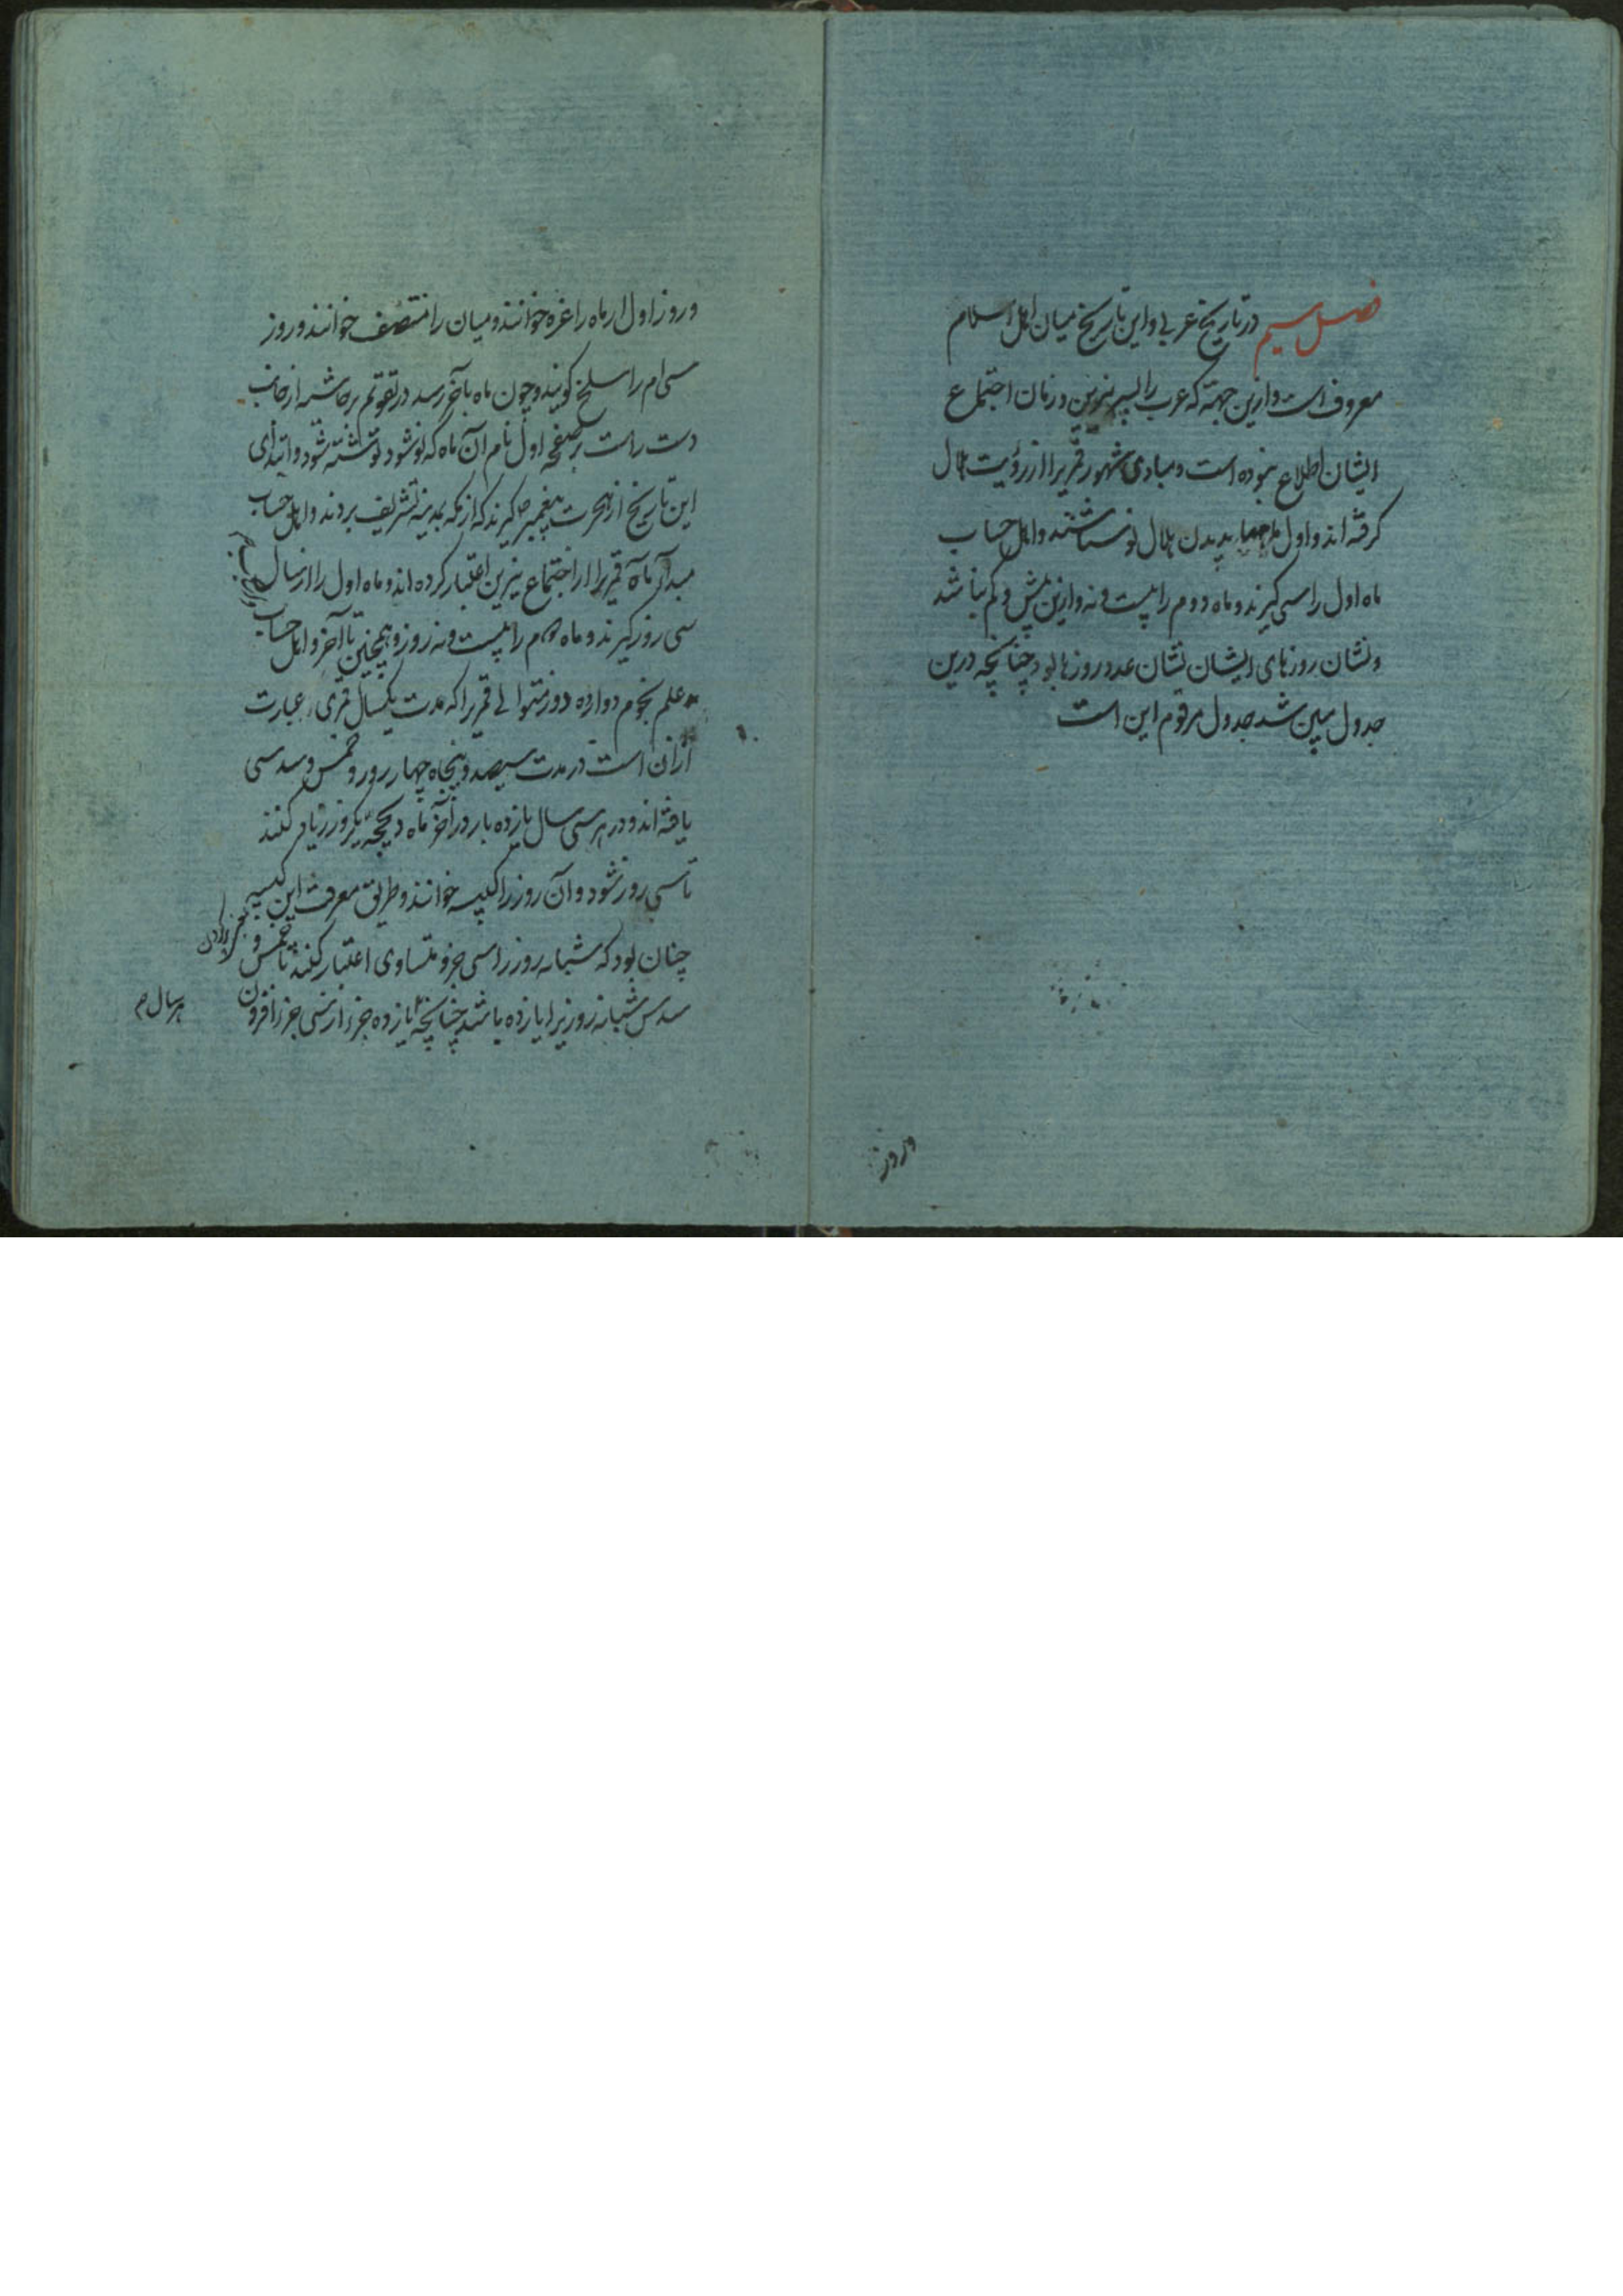 فصل سیم در تاریخ عربی و این تاریخ میان اهل اسلام
معروف است و ازین جهته که عرب را بسیر نیرین و زمان اجتماع
ایشان اطلاع نبوده است و مبادی شهور قمریرا از رؤیت هلال
گرفته اند و اول ماهها بدیدن هلال نو شناختند و اهل حساب
ماه اول را سی گیرند و ماه دوم را بیست و نه و ازین بیش و کم نباشد
و نشان روزهای ایشان نشان عدد روزها بود چنانچه درین
جدول مبین شد جدول مرقوم این است
و روز
و روز اول از ماه را غره خوانند و میان را منتصف خوانند و روز
سی ام را سلخ گویند و چون ماه بآخر رسد در تقویم بر حاشیه از جانب
دست راست بر صفحه اول نام آن ماه که نو شود نوشته شود و ابتدای
این تاریخ از هجرت پیغمبر ص گیرند که از مکه بمدینه تشریف بردند و اهل حساب
مبدأ ماه قمریرا از اجتماع نیرین اعتبار کرده اند و ماه اول را از سال
سی روز گیرند و ماه دوم را بیست و نه روز و همچنین تا آخر و اهل حساب
علم نجوم دوازده دور متوالی قمریرا که مدت یکسال قمری عبارت
ازان است در مدت سیصد و پنجاه چهار روز و خمس و سدسی
یافته اند و در هر سی سال یازده بار در آخر ماه ذیحجه یکروز زیاد کنند
تا سی روز شود و آن روز را کبیسه خوانند و طریق معرفت این کبیسه
چنان بود که شبانه روز را سی جزو متساوی اعتبار کنند تا خمس و
سدس شبانه روز یرا یازده باشد چنانچه یازده جزء از سی جزء افزون
هر سال م